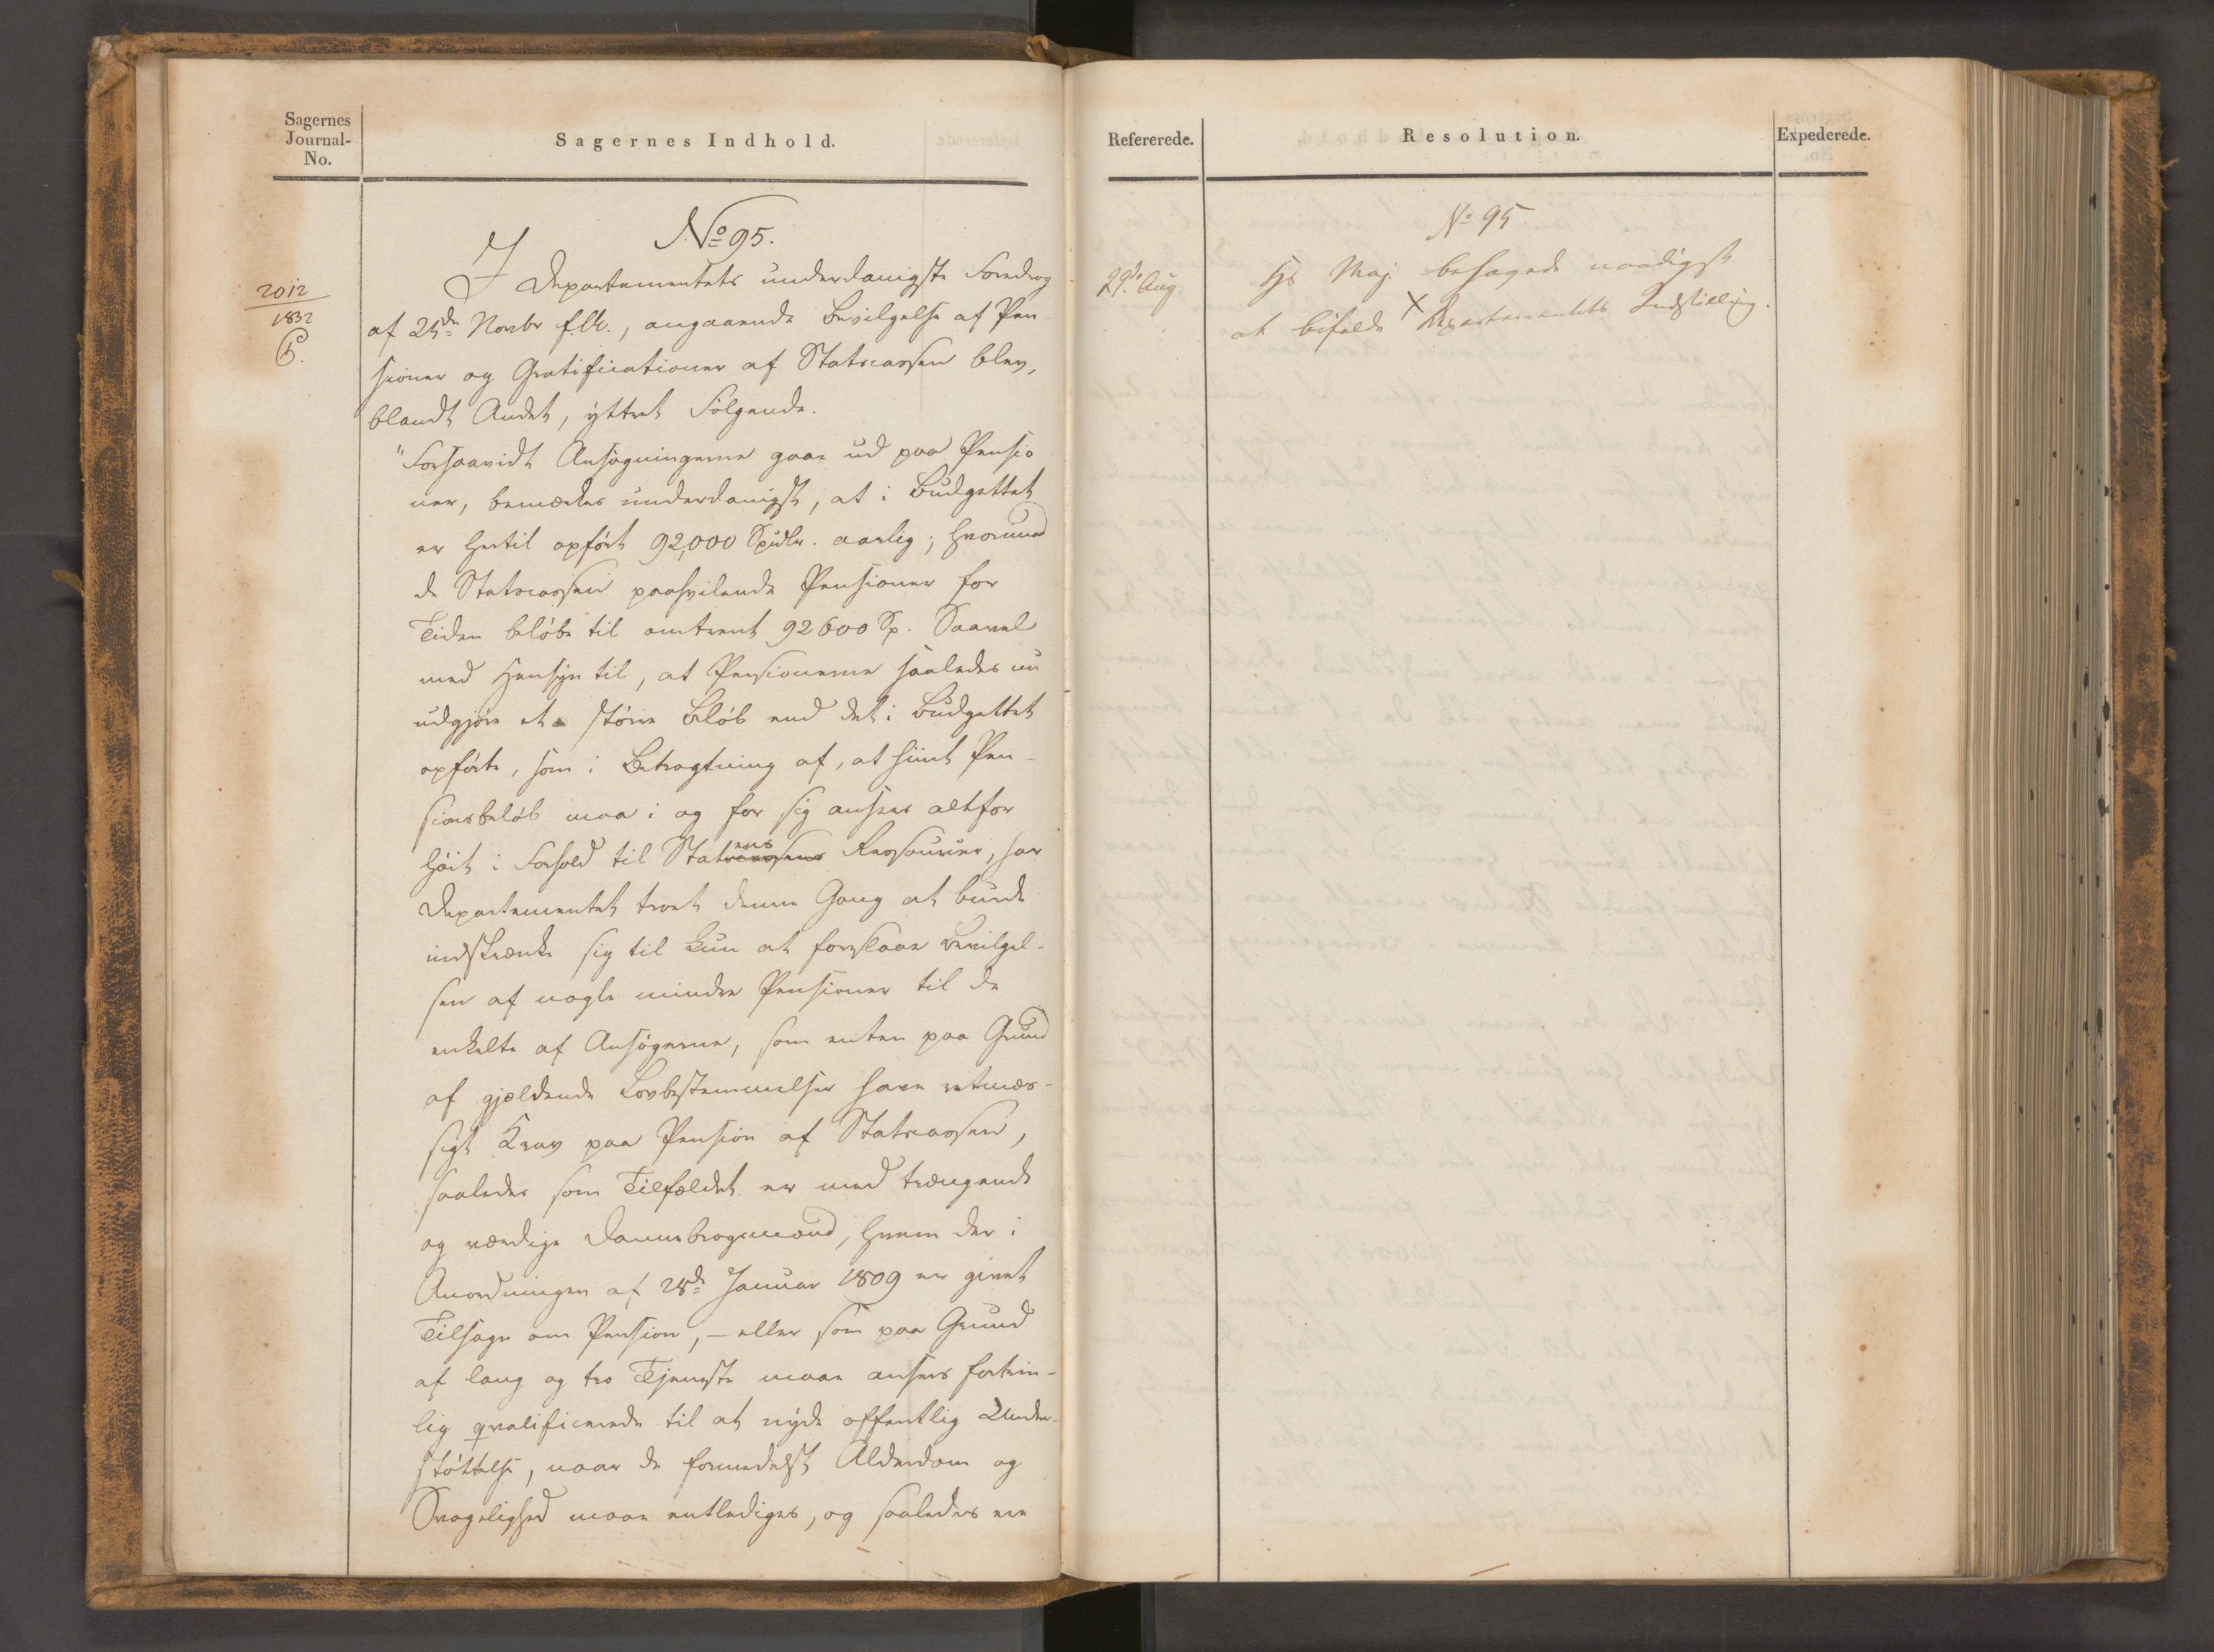 Sagernes
Journal-
No.
Sagernes Indhold.
2012
1832
P.
No 95.
I Departementets underdanigste Foredrag
af 25de Novbr f. A., angaaende Bevilgelse af Pen-
sioner og Gratificationer af Statscassen blev,
blandt Andet, yttret Følgende.
"Forsaavidt Ansøgningerne gaae ud paa Pensio
ner, bemærkes underdanigst, at i Budgettet
er hertil opført 92,000 Spdlr. aarlig; hvorimod
de Statscassen paahvilende Pensioner for
Tiden beløbe til omtrent 92600 Sp. Saavel
med Hensyn til, at Pensionerne saaledes nu
udgjøre et større Beløb end det i Budgettet
opførte, som i Betragtning af, at hiint Pen-
sionsbeløb maa i og for sig ansees altfor
høit i Forhold til Statens Ressourcer, har
Departementet troet denne Gang at burde
indskrænke sig til kun at foreslaae Bevilgel-
sen af nogle mindre Pensioner til de
enkelte af Ansøgerne, som enten paa Grund
af gjældende Lovbestemmelser have retmæs-
sigt Krav paa Pension af Statscassen,
saaledes som Tilfældet er med trængende
og værdige Dannebrogsmænd, hvem der i
Anordningen af 28de Januar 1809 er givet
Tilsagn om Pension, — eller som paa Grund
af lang og tro Tjeneste maae ansees fortrin-
lig qvalificerede til at nyde offentlig Under-
støttelse, naar de formedelst Alderdom og
Svagelighed maae entlediges, og saaledes ere
Refererede.
Resolution.
Expederede.
29de Aug.
No 95
Hs Maj. behagede naadigst
at bifalde × Departementets Indstilling.